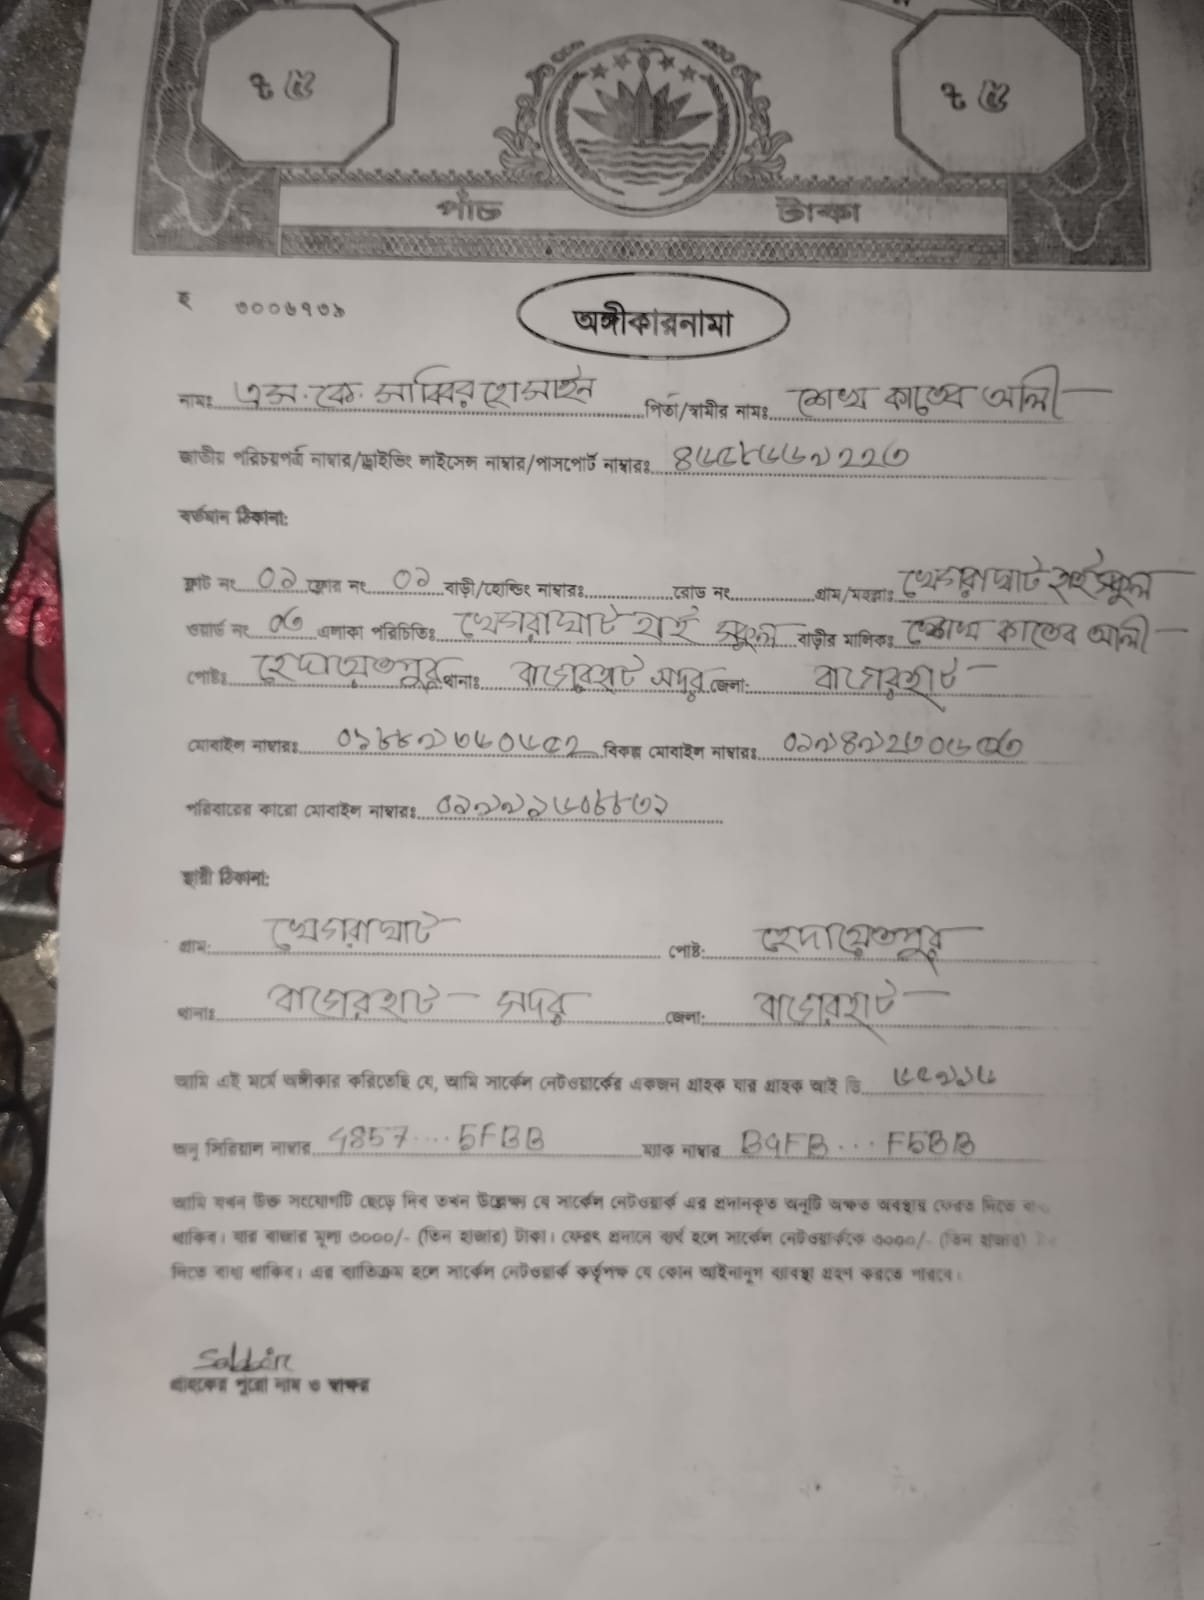 ৳ ৫ ৳ ৫
পাঁচ টাকা
হ ৩০০৬৭৩৯
অঙ্গীকারনামা
নামঃ এস. কে. সাব্বির হোসাইন পিতা/স্বামীর নামঃ শেখ কাতেব আলী
জাতীয় পরিচয়পত্র নাম্বার/ড্রাইভিং লাইসেন্স নাম্বার/পাসপোর্ট নাম্বারঃ
বর্তমান ঠিকানা:
ফ্লাট নং ০১ ফ্লোর নং ০১ বাড়ী/হোল্ডিং নাম্বারঃ রোড নং গ্রাম/মহল্লাঃ হাই স্কুল
ওয়ার্ড নং ০৩ এলাকা পরিচিতিঃ হাই স্কুল বাড়ীর মালিকঃ শেখ কাতেব আলী
পোষ্টঃ হেদায়েতপুর থানাঃ বাগেরহাট সদর জেলা: বাগেরহাট
মোবাইল নাম্বারঃ বিকল্প মোবাইল নাম্বারঃ
পরিবারের কারো মোবাইল নাম্বারঃ
স্থায়ী ঠিকানা:
গ্রাম: পোষ্ট: হেদায়েতপুর
থানাঃ বাগেরহাট সদর জেলা: বাগেরহাট
আমি এই মর্মে অঙ্গীকার করিতেছি যে, আমি সার্কেল নেটওয়ার্কের একজন গ্রাহক যার গ্রাহক আই ডি
অনু সিরিয়াল নাম্বার 4857....5FBB ম্যাক নাম্বার B4FB...F5BB
আমি যখন উক্ত সংযোগটি ছেড়ে দিব তখন উল্লেক্ষ্য যে সার্কেল নেটওয়ার্ক এর প্রদানকৃত অনুটি অক্ষত অবস্থায় ফেরত দিতে
থাকিব। যার বাজার মূল্য ৩০০০/- (তিন হাজার) টাকা। ফেরৎ প্রদানে ব্যর্থ হলে সার্কেল নেটওয়ার্ককে ৩০০০/- (তিন হাজার)
দিতে বাধ্য থাকিব। এর ব্যতিক্রম হলে সার্কেল নেটওয়ার্ক কর্তৃপক্ষ যে কোন আইনানুগ ব্যবস্থা গ্রহণ করতে পারবে।
Sabbir
গ্রাহকের পুরো নাম ও স্বাক্ষর